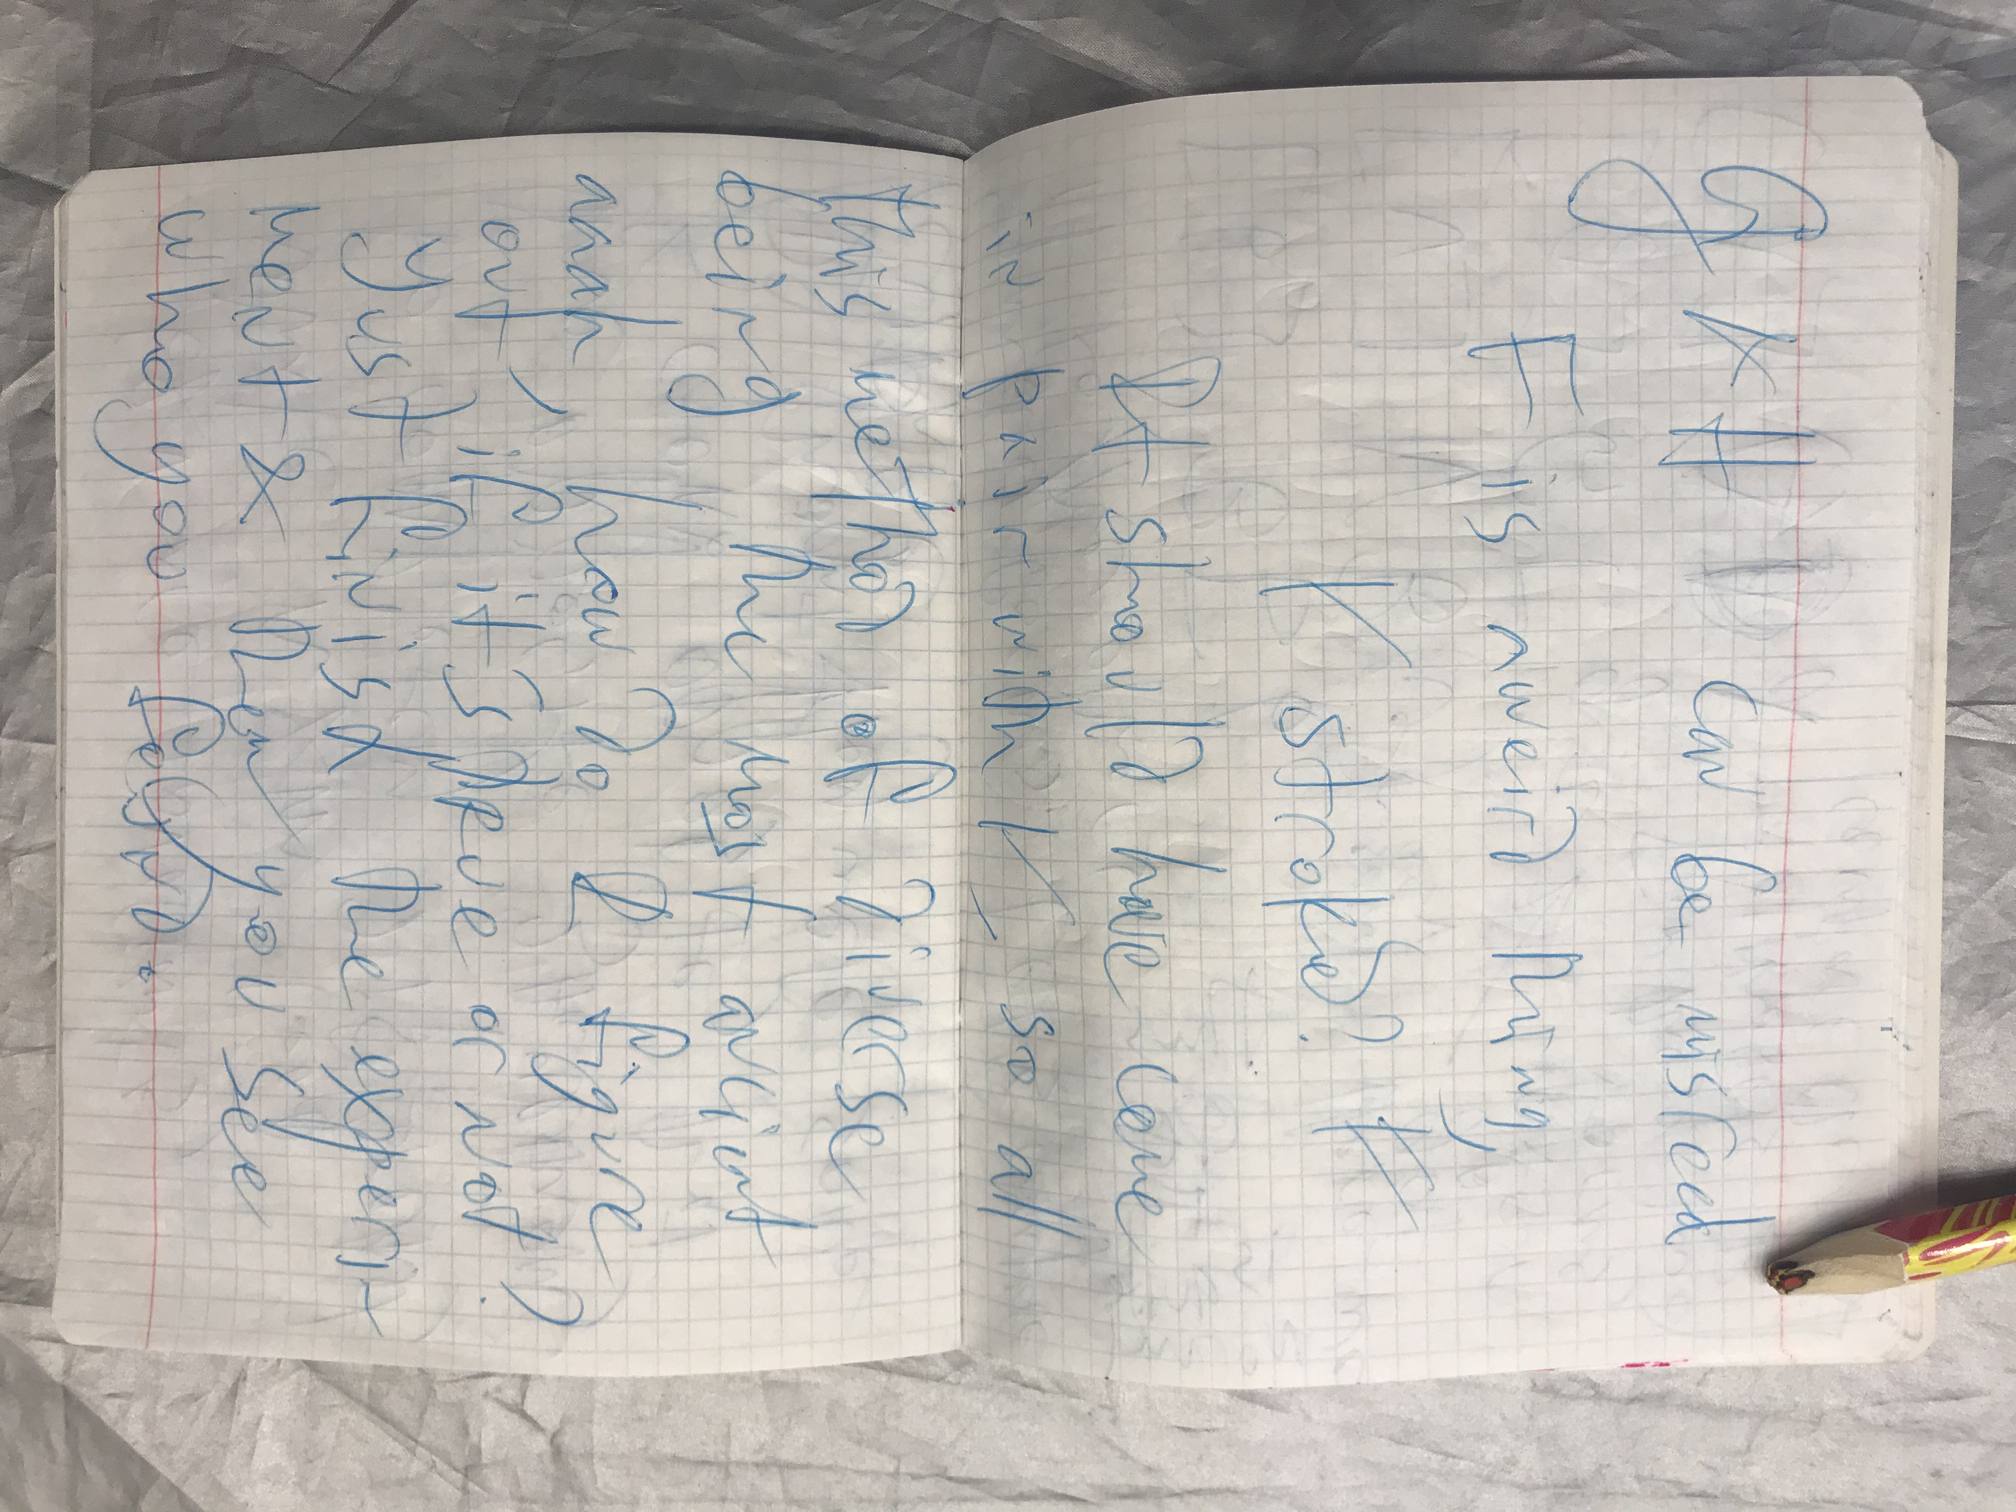 K H can be
F is weird thing,
K stroked? K
It should have come
in pair with K, so all
this method of diverse
being the most
how do I figure
out, if it's or not?
Just finish the experi-
ment & then you see
who you